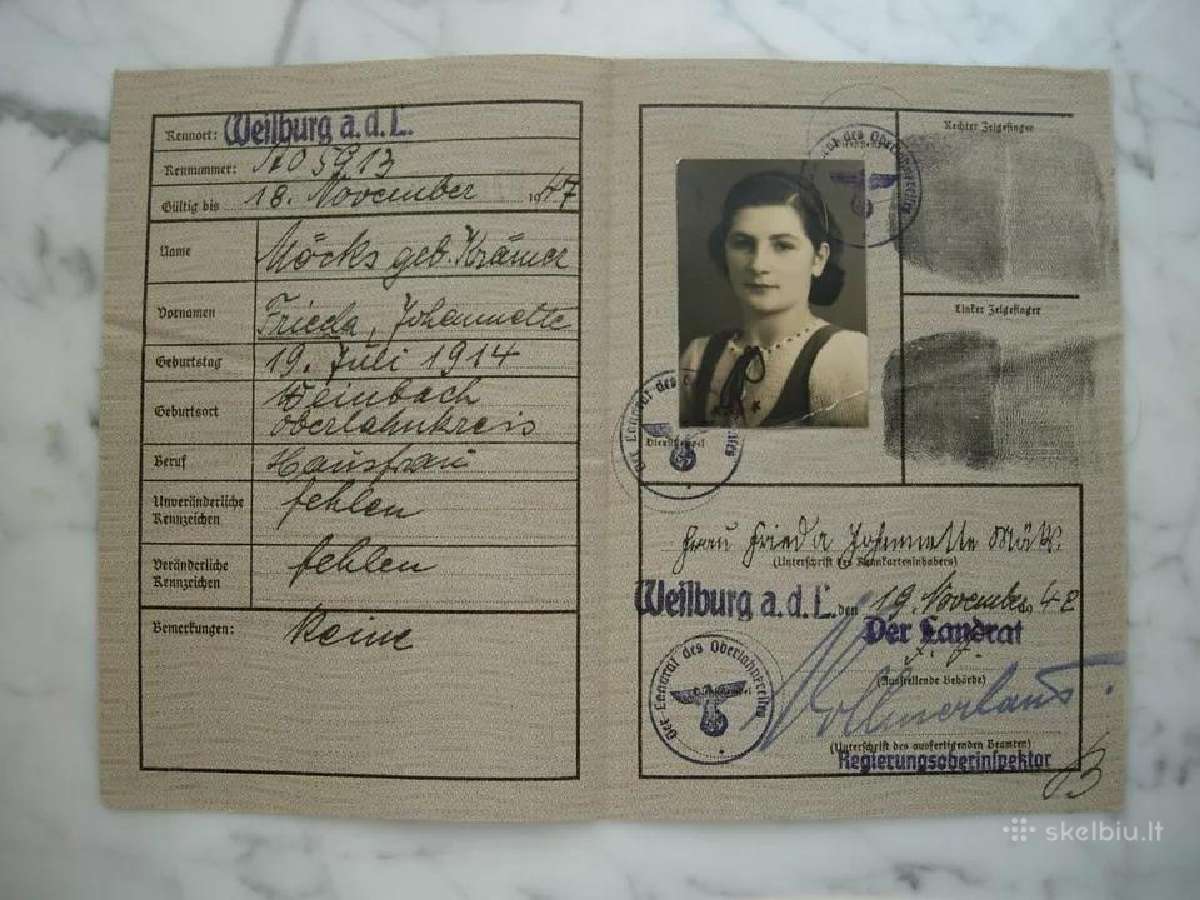 Kennort: Weilburg a.d.L.
Kennummer: A05913
Gültig bis 18. November 1947
Name Möcks geb. Krämer
Vornamen Frieda, Johannette
Geburtstag 19. Juli 1914
Geburtsort Weinbach
Oberlahnkreis
Beruf Hausfrau
Unveränderliche
Kennzeichen fehlen
Veränderliche
Kennzeichen fehlen
Bemerkungen: Keine
Rechter Zeigefinger
Linker Zeigefinger
Der Landrat des Oberlahnkreises
Dienststempel
Frau Frieda Johannette
(Unterschrift des Kennkarteninhabers)
Weilburg a.d.L. den 19. November 1942
Der Landrat
(Ausstellende Behörde)
Der Landrat des Oberlahnkreises
Dienststempel
(Unterschrift des ausfertigenden Beamten)
Regierungsoberinspektor
skelbiu.lt